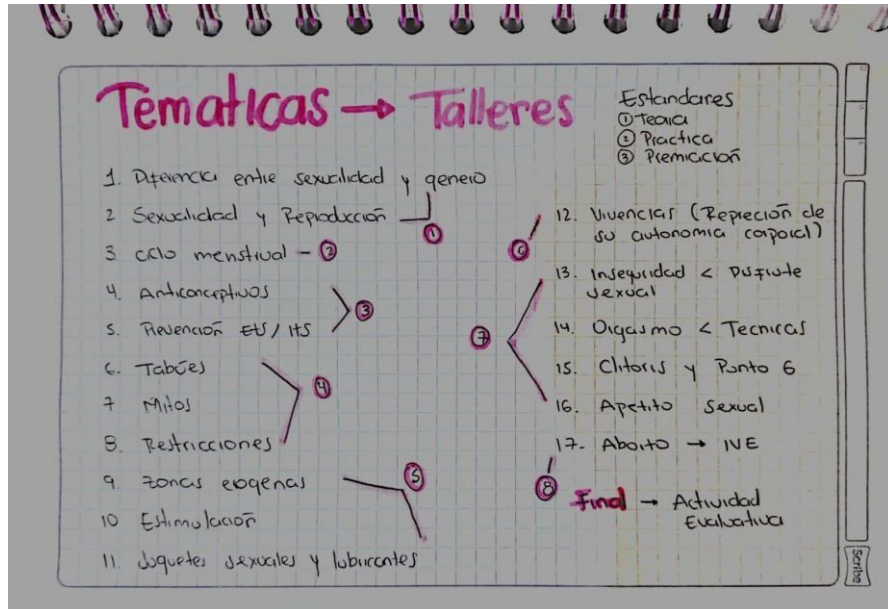 Tematicas → Talleres
Estandares
① Teoria
② Practica
③ Premiación
1. Diferencia entre sexualidad y genero
2 Sexualidad y Reproducción
①
3 ciclo menstrual - ②
4. Anticonceptivos
5. Prevención ETS / ITS
③
6. Tabúes
7 Mitos
8. Restricciones
④
9. zonas erogenas
10 Estimulación
11. Juguetes sexuales y lubricantes
⑤
12. Vivencias (Represión de
su autonomia corporal)
⑥
13. Inseguridad < Disfrute
sexual
14. Orgasmo < Tecnicas
15. Clitoris y Punto G
16. Apetito Sexual
⑦
17- Aborto → IVE
⑧
Final → Actividad
Evaluativa
Scribe